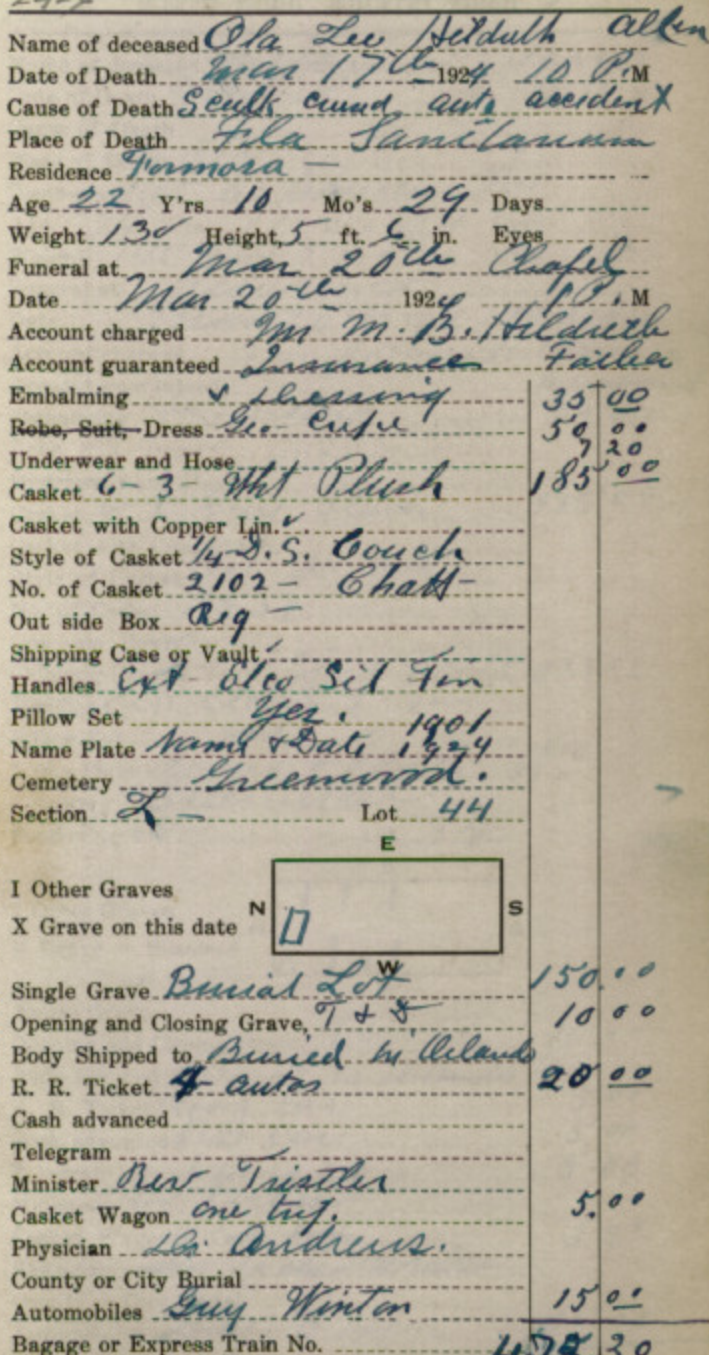 Name of deceased Ola Lee Hildreth Allen
Date of Death Mar 17th 1924 10 P.M
Cause of Death Scull crused auto accident
Place of Death Fla Sanitarium
Residence Formosa -
Age 22 Y'rs 10 Mo's 29 Days
Weight 130 Height, 5 ft. 6 in. Eyes
Funeral at Mar 20th Chapel
Date Mar 20th 1924 P.M
Account charged Mr M. B. Hildreth
Account guaranteed Insurance Father
Embalming & Dressing 35 00
Robe, Suit, Dress Geo Crepe 50 00
Underwear and Hose 7 20
Casket 6-3- Wht Plush 185 00
Casket with Copper Lin.
Style of Casket 1/4 D.S. Couch
No. of Casket 2102 - Chatt -
Out side Box Reg -
Shipping Case or Vault
Handles Ext Elco Sil Fin
Pillow Set Yes. 1901
Name Plate Name & Date 1924
Cemetery Greenwood.
Section L - Lot 44
E
I Other Graves
N S
X Grave on this date
W
Single Grave Burial Lot 150.00
Opening and Closing Grave, T & 10 00
Body Shipped to Buried in Orlando
R. R. Ticket 4 autos 20 00
Cash advanced
Telegram
Minister Rev Tristler
Casket Wagon one trip. 5.00
Physician Dr. Andrews.
County or City Burial
Automobiles Guy Winton 15 00
Bagage or Express Train No. 20